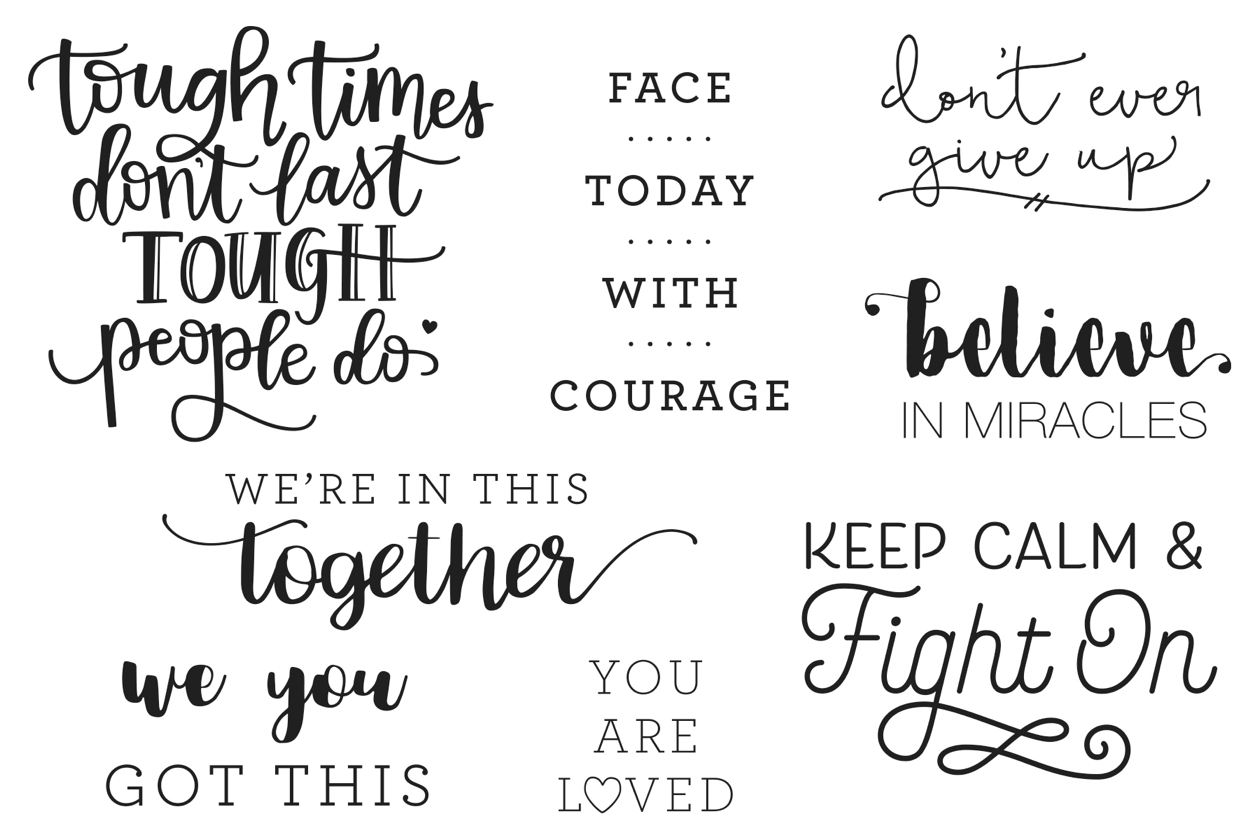 tough times
don't last
TOUGH
people do
FACE
TODAY
WITH
COURAGE
don't ever
give up
believe
IN MIRACLES
WE'RE IN THIS
together
KEEP CALM &
Fight On
we you
GOT THIS
YOU
ARE
LOVED